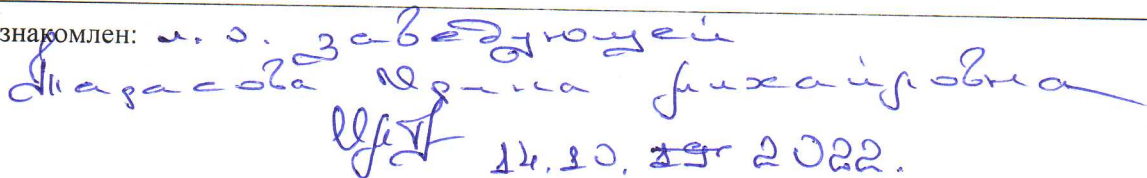 знакомлен: и.о. заведующей
Тарасова Ирина Михайловна
14.10. 2022.